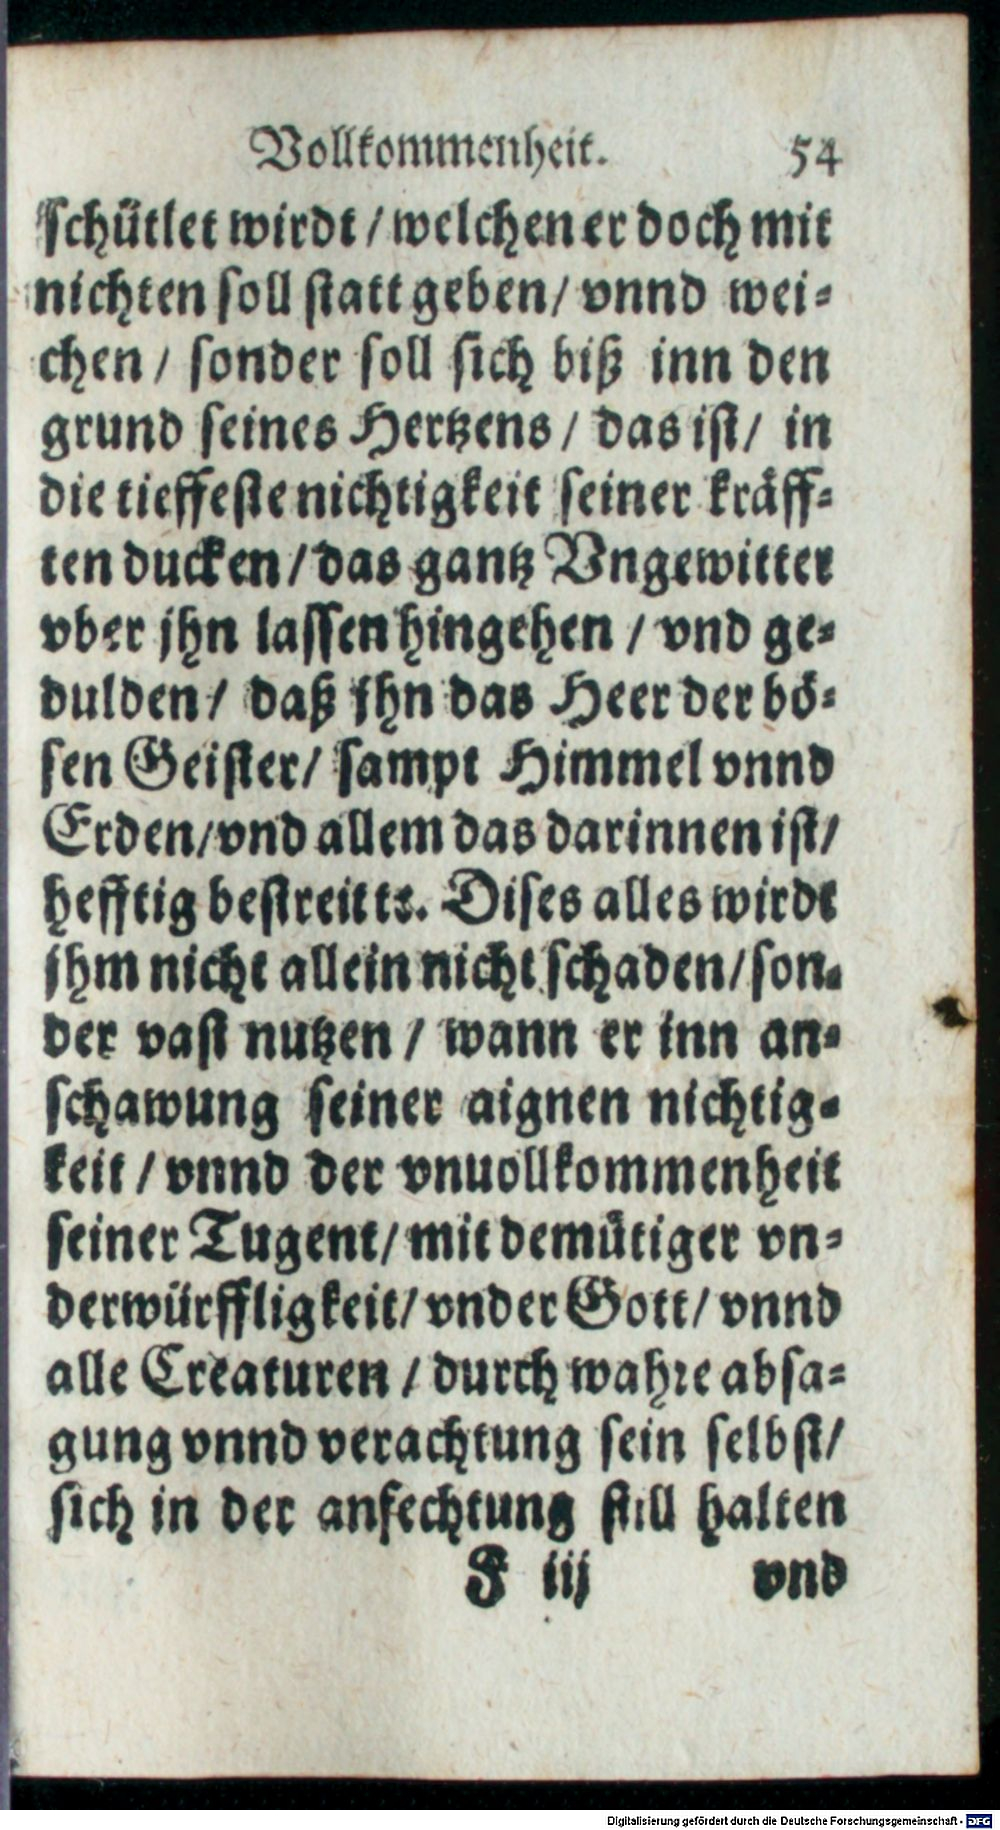 Vollkommenheit. 54
schütlet wirdt / welchen er doch mit
nichten soll statt geben / vnnd wei-
chen / sonder soll sich biß inn den
grund seines Hertzens / das ist / in
die tieffeste nichtigkeit seiner kräff-
ten ducken / das gantz Vngewitter
vber jhn lassen hingehen / vnd ge-
dulden / daß jhn das Heer der bö-
sen Geister / sampt Himmel vnnd
Erden / vnd allem das darinnen ist /
hefftig bestreitte. Dises alles wirdt
jhm nicht allein nicht schaden / son-
der vast nutzen / wann er inn an-
schawung seiner aignen nichtig-
keit / vnnd der vnuollkommenheit
seiner Tugent / mit demütiger vn-
derwürffligkeit / vnder Gott / vnnd
alle Creaturen / durch wahre absa-
gung vnnd verachtung sein selbst /
sich in der anfechtung still halten
F iij vnd
Digitalisierung gefördert durch die Deutsche Forschungsgemeinschaft - DFG